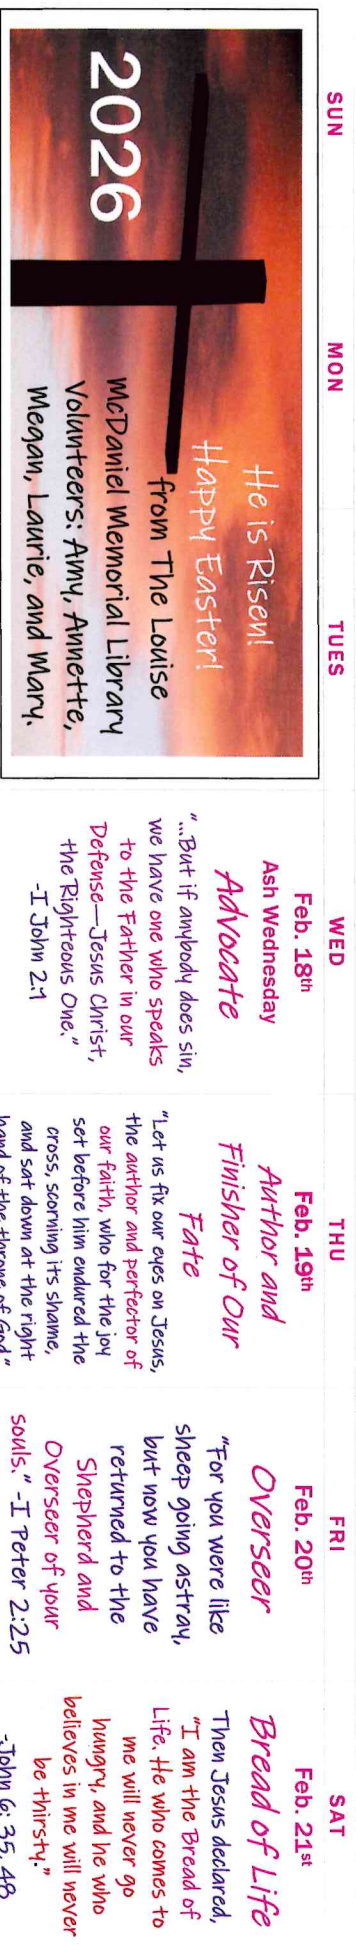 SUN
MON
TUES
WED
THU
FRI
SAT
2026
He is Risen!
Happy Easter!
from The Louise
McDaniel Memorial Library
Volunteers: Amy, Annette,
Megan, Laurie, and Mary.
Feb. 18th
Ash Wednesday
Advocate
"...But if anybody does sin,
we have one who speaks
to the Father in our
Defense—Jesus Christ,
the Righteous One."
-I John 2:1
Feb. 19th
Author and
Finisher of Our
Fate
"Let us fix our eyes on Jesus,
the author and perfector of
our faith, who for the joy
set before him endured the
cross, scorning its shame,
and sat down at the right
hand of the throne of God."
Feb. 20th
Overseer
"For you were like
sheep going astray,
but now you have
returned to the
Shepherd and
Overseer of your
souls." -I Peter 2:25
Feb. 21st
Bread of Life
Then Jesus declared,
"I am the Bread of
Life. He who comes to
me will never go
hungry, and he who
believes in me will never
be thirsty."
-John 6: 35, 48